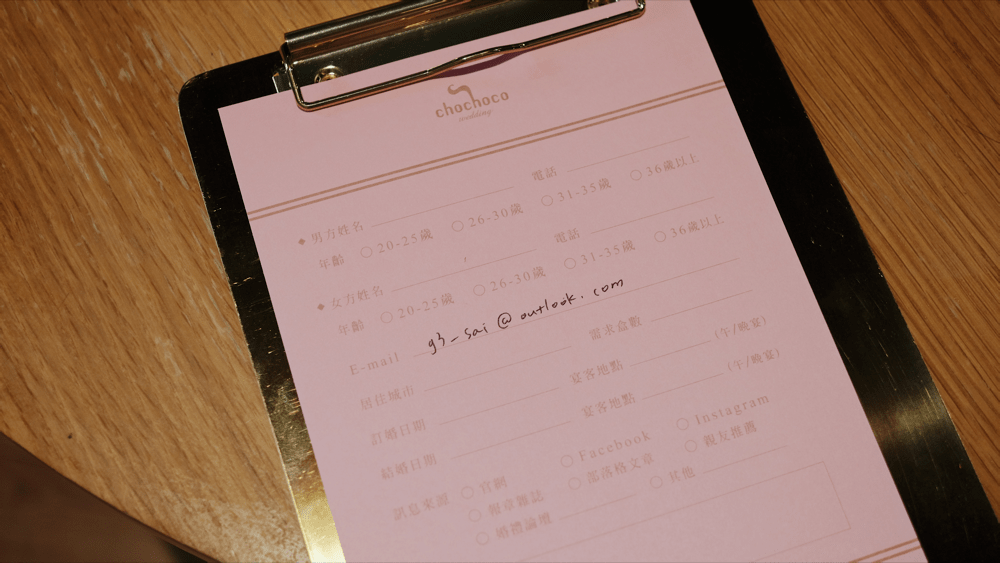 chochoco
wedding
◆ 男方姓名 電話
年齡 ○ 20-25歲 ○ 26-30歲 ○ 31-35歲 ○ 36歲以上
◆ 女方姓名 電話
年齡 ○ 20-25歲 ○ 26-30歲 ○ 31-35歲 ○ 36歲以上
E-mail g3_sai@outlook.com
居住城市 需求盒數
訂婚日期 宴客地點 (午/晚宴)
結婚日期 宴客地點 (午/晚宴)
訊息來源 ○ 官網 ○ Facebook ○ Instagram
○ 報章雜誌 ○ 部落格文章 ○ 親友推薦
○ 婚禮論壇 ○ 其他